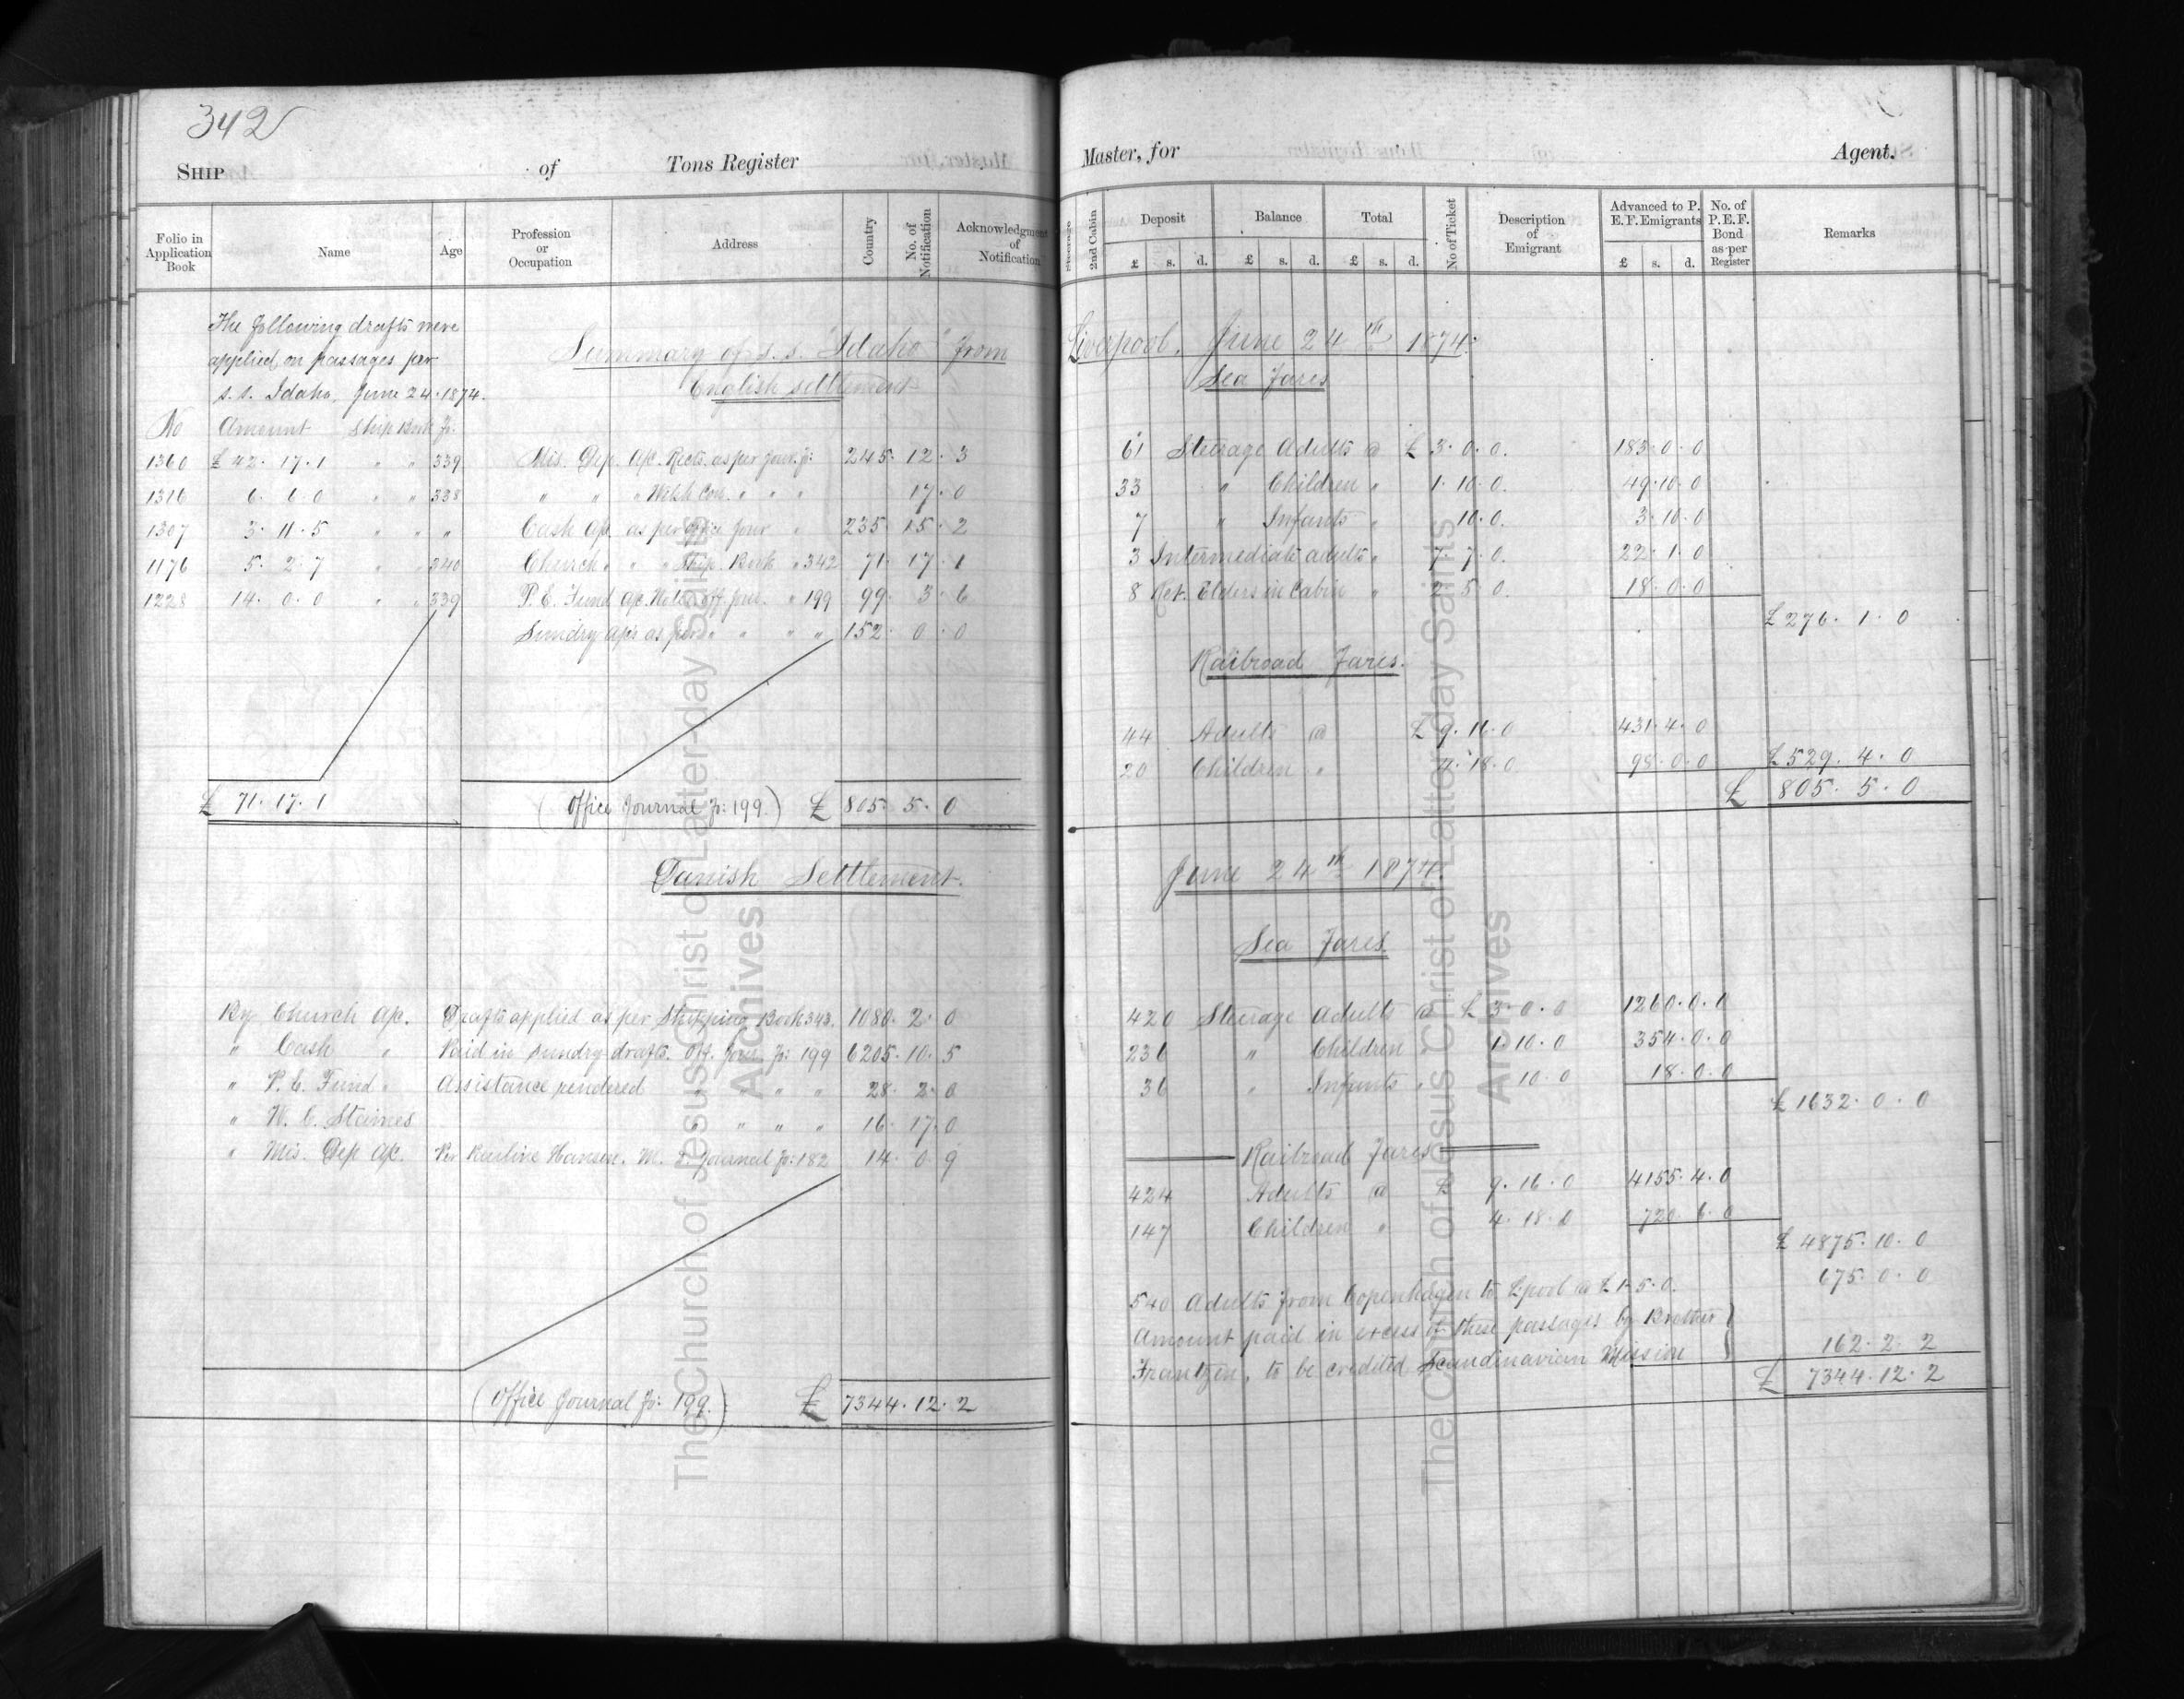 342
SHIP of Tons Register
Folio in Application Book Name Age Profession or Occupation Address Country No. of Notification Acknowledgment of Notification
The following drafts were
applied on passages per
s.s. Idaho, June 24. 1874.
Summary of s.s. "Idaho" from
English settlement
No Amount Ship Book Fo.
1360 £ 42. 17. 1 " " 339 Mis. Dep. A/c. Rects. as per Jour. Fo: 245. 12. 3
1316 6. 6. 0 " " 338 " " " Welsh Con. " " " 17. 0
1307 3. 11. 5 " " " Cash A/c as per Office Jour " 235. 15. 2
1176 5. 2. 7 " " 340 Church " " " Ship. Book " 342 71. 17. 1
1228 14. 0. 0 " " 339 P. E. Fund A/c. Off. Jour. " 199 99. 3. 6
Sundry A/cs as per " " " " 152. 0. 0
£ 71. 17. 1 (Office Journal Fo: 199.) £ 805. 5. 0
Danish Settlement.
By Church A/c. Drafts applied as per Shipping Book 343. 1080. 2. 0
" Cash " Paid in sundry drafts. Off. Jour. Fo: 199 6205. 10. 5
" P. E. Fund " Assistance rendered " " " " 28. 2. 0
" W. C. Staines " " " " 16. 17. 0
" Mis. Dep A/c. Per Karline Hansen. M. D. Journal Fo: 182 14. 0. 9
(Office Journal Fo: 199.) £ 7344. 12. 2
Master, for Agent.
Steerage 2nd Cabin Deposit £ s. d. Balance £ s. d. Total £ s. d. No of Ticket Description of Emigrant Advanced to P. E. F. Emigrants £ s. d. No. of P.E.F. Bond as per Register Remarks
Liverpool, June 24th 1874.
Sea Fares
61 Steerage Adults @ £ 3. 0. 0. 183. 0. 0
33 " Children " 1. 10. 0. 49. 10. 0
7 " Infants " 10. 0. 3. 10. 0
3 Intermediate adults " 7. 7. 0. 22. 1. 0
8 Ret. Elders in Cabin " 2. 5. 0. 18. 0. 0
£ 276. 1. 0
Railroad Fares.
44 Adults @ £ 9. 16. 0 431. 4. 0
20 Children " 4. 18. 0. 98. 0. 0 £ 529. 4. 0
£ 805. 5. 0
June 24th 1874.
Sea Fares.
420 Steerage Adults @ £ 3. 0. 0 1260. 0. 0
236 " Children 1. 10. 0 354. 0. 0
36 " Infants " 10. 0 18. 0. 0
£ 1632. 0. 0
Railroad Fares
424 Adults @ £ 9. 16. 0 4155. 4. 0
147 Children " 4. 18. 0 720. 6. 0
£ 4875. 10. 0
540 Adults from Copenhagen to L'pool @ £ 1. 5. 0. 675. 0. 0
Amount paid in excess of these passages by Brother
Frantzen, to be credited Scandinavian Mission 162. 2. 2
£ 7344. 12. 2
The Church of Jesus Christ of Latter-day Saints
Archives
The Church of Jesus Christ of Latter-day Saints
Archives